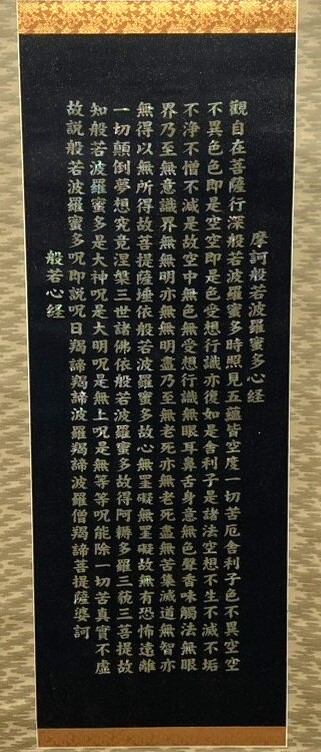 摩訶般若波羅蜜多心経
觀自在菩薩行深般若波羅蜜多時照見五蘊皆空度一切苦厄舎利子色不異空空
不異色色即是空空即是色受想行識亦復如是舎利子是諸法空想不生不滅不垢
不浄不憎不減是故空中無色無受想行識無眼耳鼻舌身意無色聲香味觸法無眼
界乃至無意識界無無明亦無無明盡乃至無老死亦無老死盡無苦集滅道無智亦
無得以無所得故菩提薩埵依般若波羅蜜多故心無罣礙無罣礙故無有恐怖遠離
一切顛倒夢想究竟涅槃三世諸佛依般若波羅蜜多故得阿耨多羅三藐三菩提故
知般若波羅蜜多是大神呪是大明呪是無上呪是無等等呪能除一切苦真實不虚
故説般若波羅蜜多呪即説呪曰羯諦羯諦波羅羯諦波羅僧羯諦菩提薩婆訶
般若心経